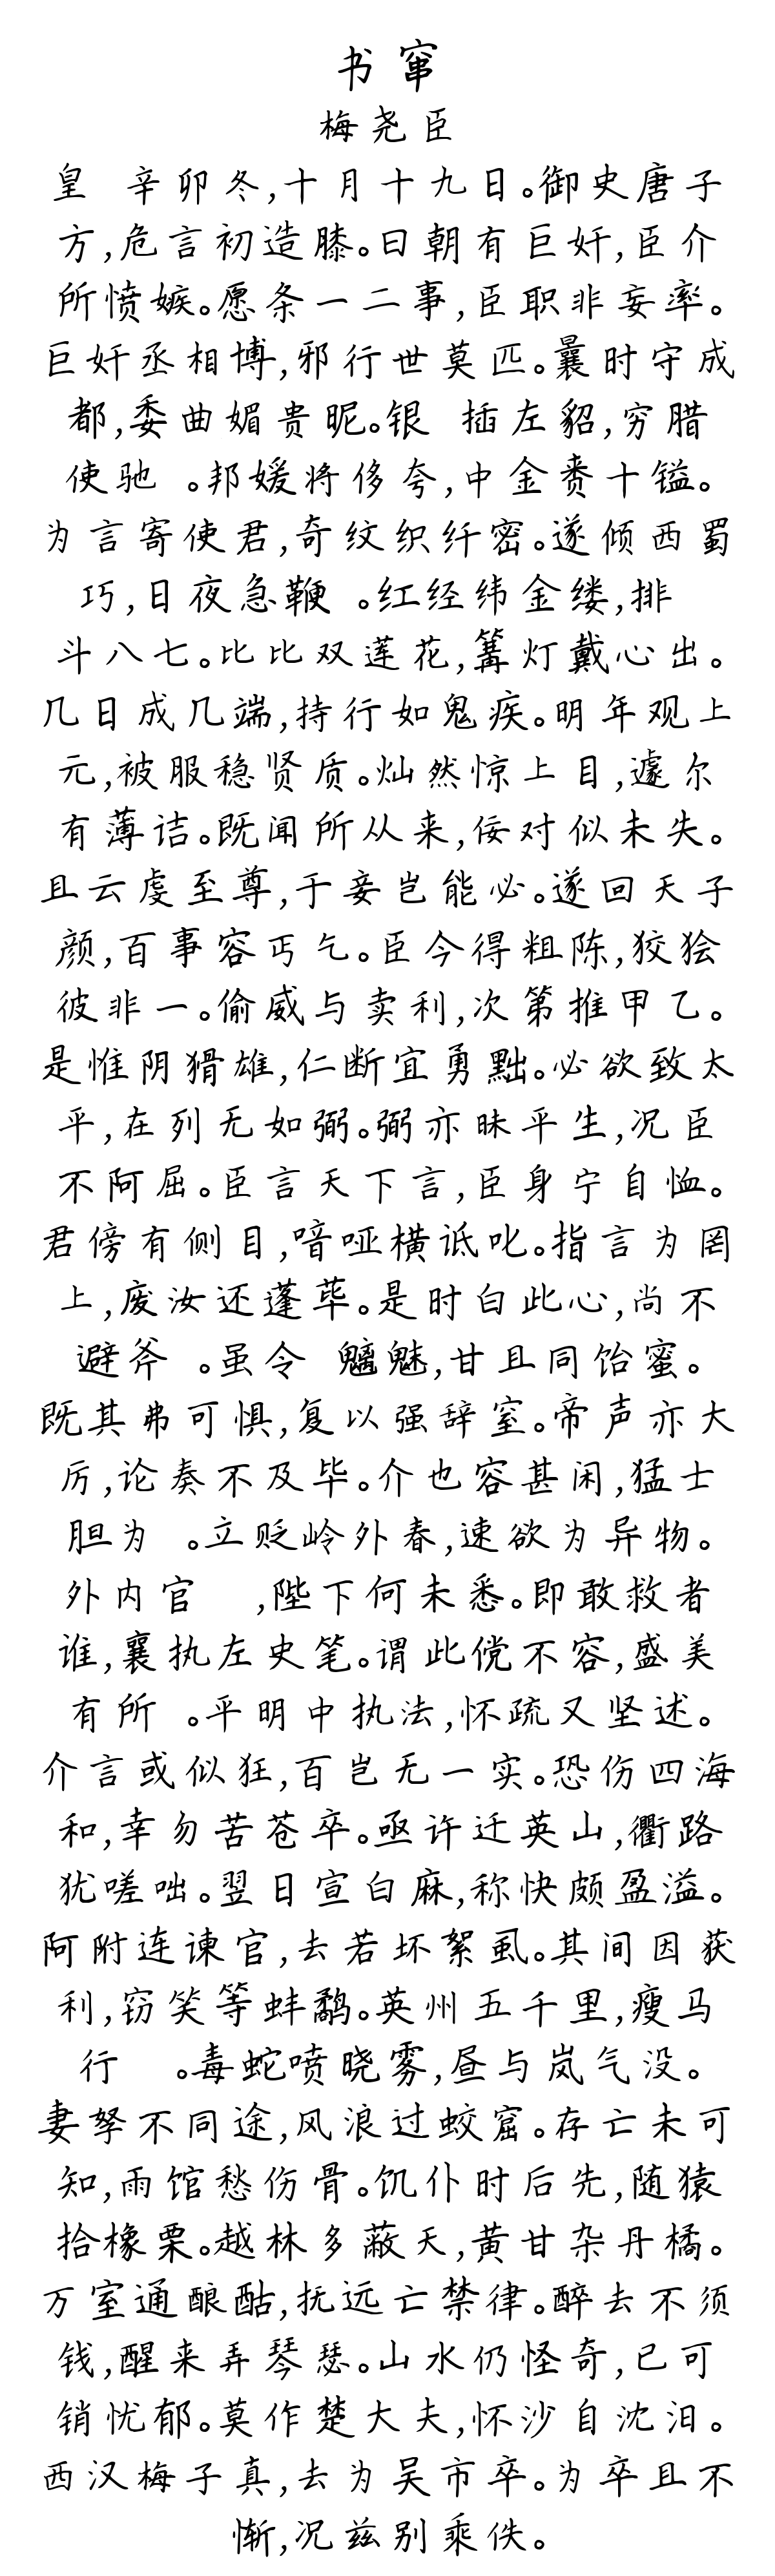 书窜
梅尧臣
皇 辛卯冬,十月十九日。御史唐子
方,危言初造膝。曰朝有巨奸,臣介
所愤嫉。愿条一二事,臣职非妄率。
巨奸丞相博,邪行世莫匹。曩时守成
都,委曲媚贵昵。银 插左貂,穷腊
使驰 。邦媛将侈夸,中金赉十镒。
为言寄使君,奇纹织纤密。遂倾西蜀
巧,日夜急鞭 。红经纬金缕,排
斗八七。比比双莲花,篝灯戴心出。
几日成几端,持行如鬼疾。明年观上
元,被服稳贤质。灿然惊上目,遽尔
有薄诘。既闻所从来,佞对似未失。
且云虔至尊,于妾岂能必。遂回天子
颜,百事容丐乞。臣今得粗陈,狡狯
彼非一。偷威与卖利,次第推甲乙。
是惟阴猾雄,仁断宜勇黜。必欲致太
平,在列无如弼。弼亦昧平生,况臣
不阿屈。臣言天下言,臣身宁自恤。
君傍有侧目,喑哑横诋叱。指言为罔
上,废汝还蓬荜。是时白此心,尚不
避斧 。虽令 魑魅,甘且同饴蜜。
既其弗可惧,复以强辞窒。帝声亦大
厉,论奏不及毕。介也容甚闲,猛士
胆为 。立贬岭外春,速欲为异物。
外内官  ,陛下何未悉。即敢救者
谁,襄执左史笔。谓此傥不容,盛美
有所 。平明中执法,怀疏又坚述。
介言或似狂,百岂无一实。恐伤四海
和,幸勿苦苍卒。亟许迁英山,衢路
犹嗟咄。翌日宣白麻,称快颇盈溢。
阿附连谏官,去若坏絮虱。其间因获
利,窃笑等蚌鹬。英州五千里,瘦马
行  。毒蛇喷晓雾,昼与岚气没。
妻孥不同途,风浪过蛟窟。存亡未可
知,雨馆愁伤骨。饥仆时后先,随猿
拾橡栗。越林多蔽天,黄甘杂丹橘。
万室通酿酤,抚远亡禁律。醉去不须
钱,醒来弄琴瑟。山水仍怪奇,已可
销忧郁。莫作楚大夫,怀沙自沈汨。
西汉梅子真,去为吴市卒。为卒且不
惭,况兹别乘佚。